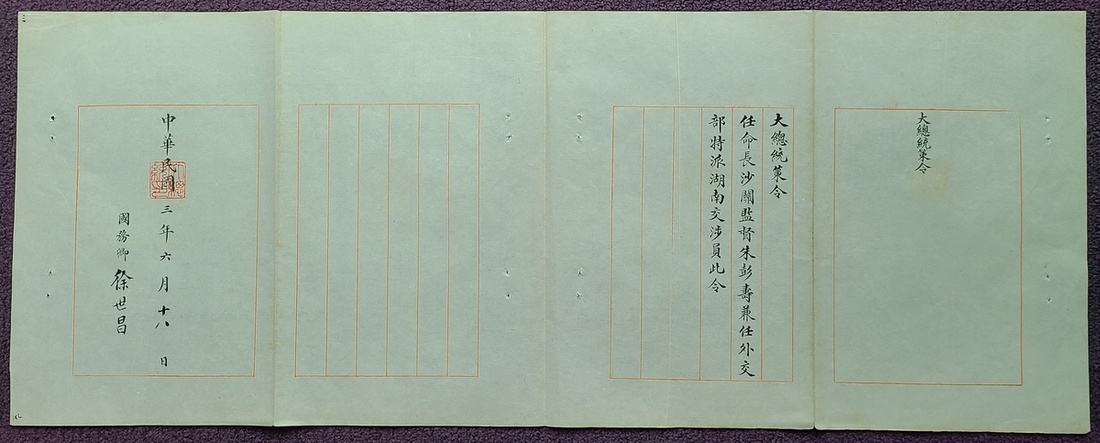 大總統策令
大總統策令
任命長沙關監督朱彭壽兼任外交
部特派湖南交涉員此令
中華民國三年六月十八日
國務卿徐世昌